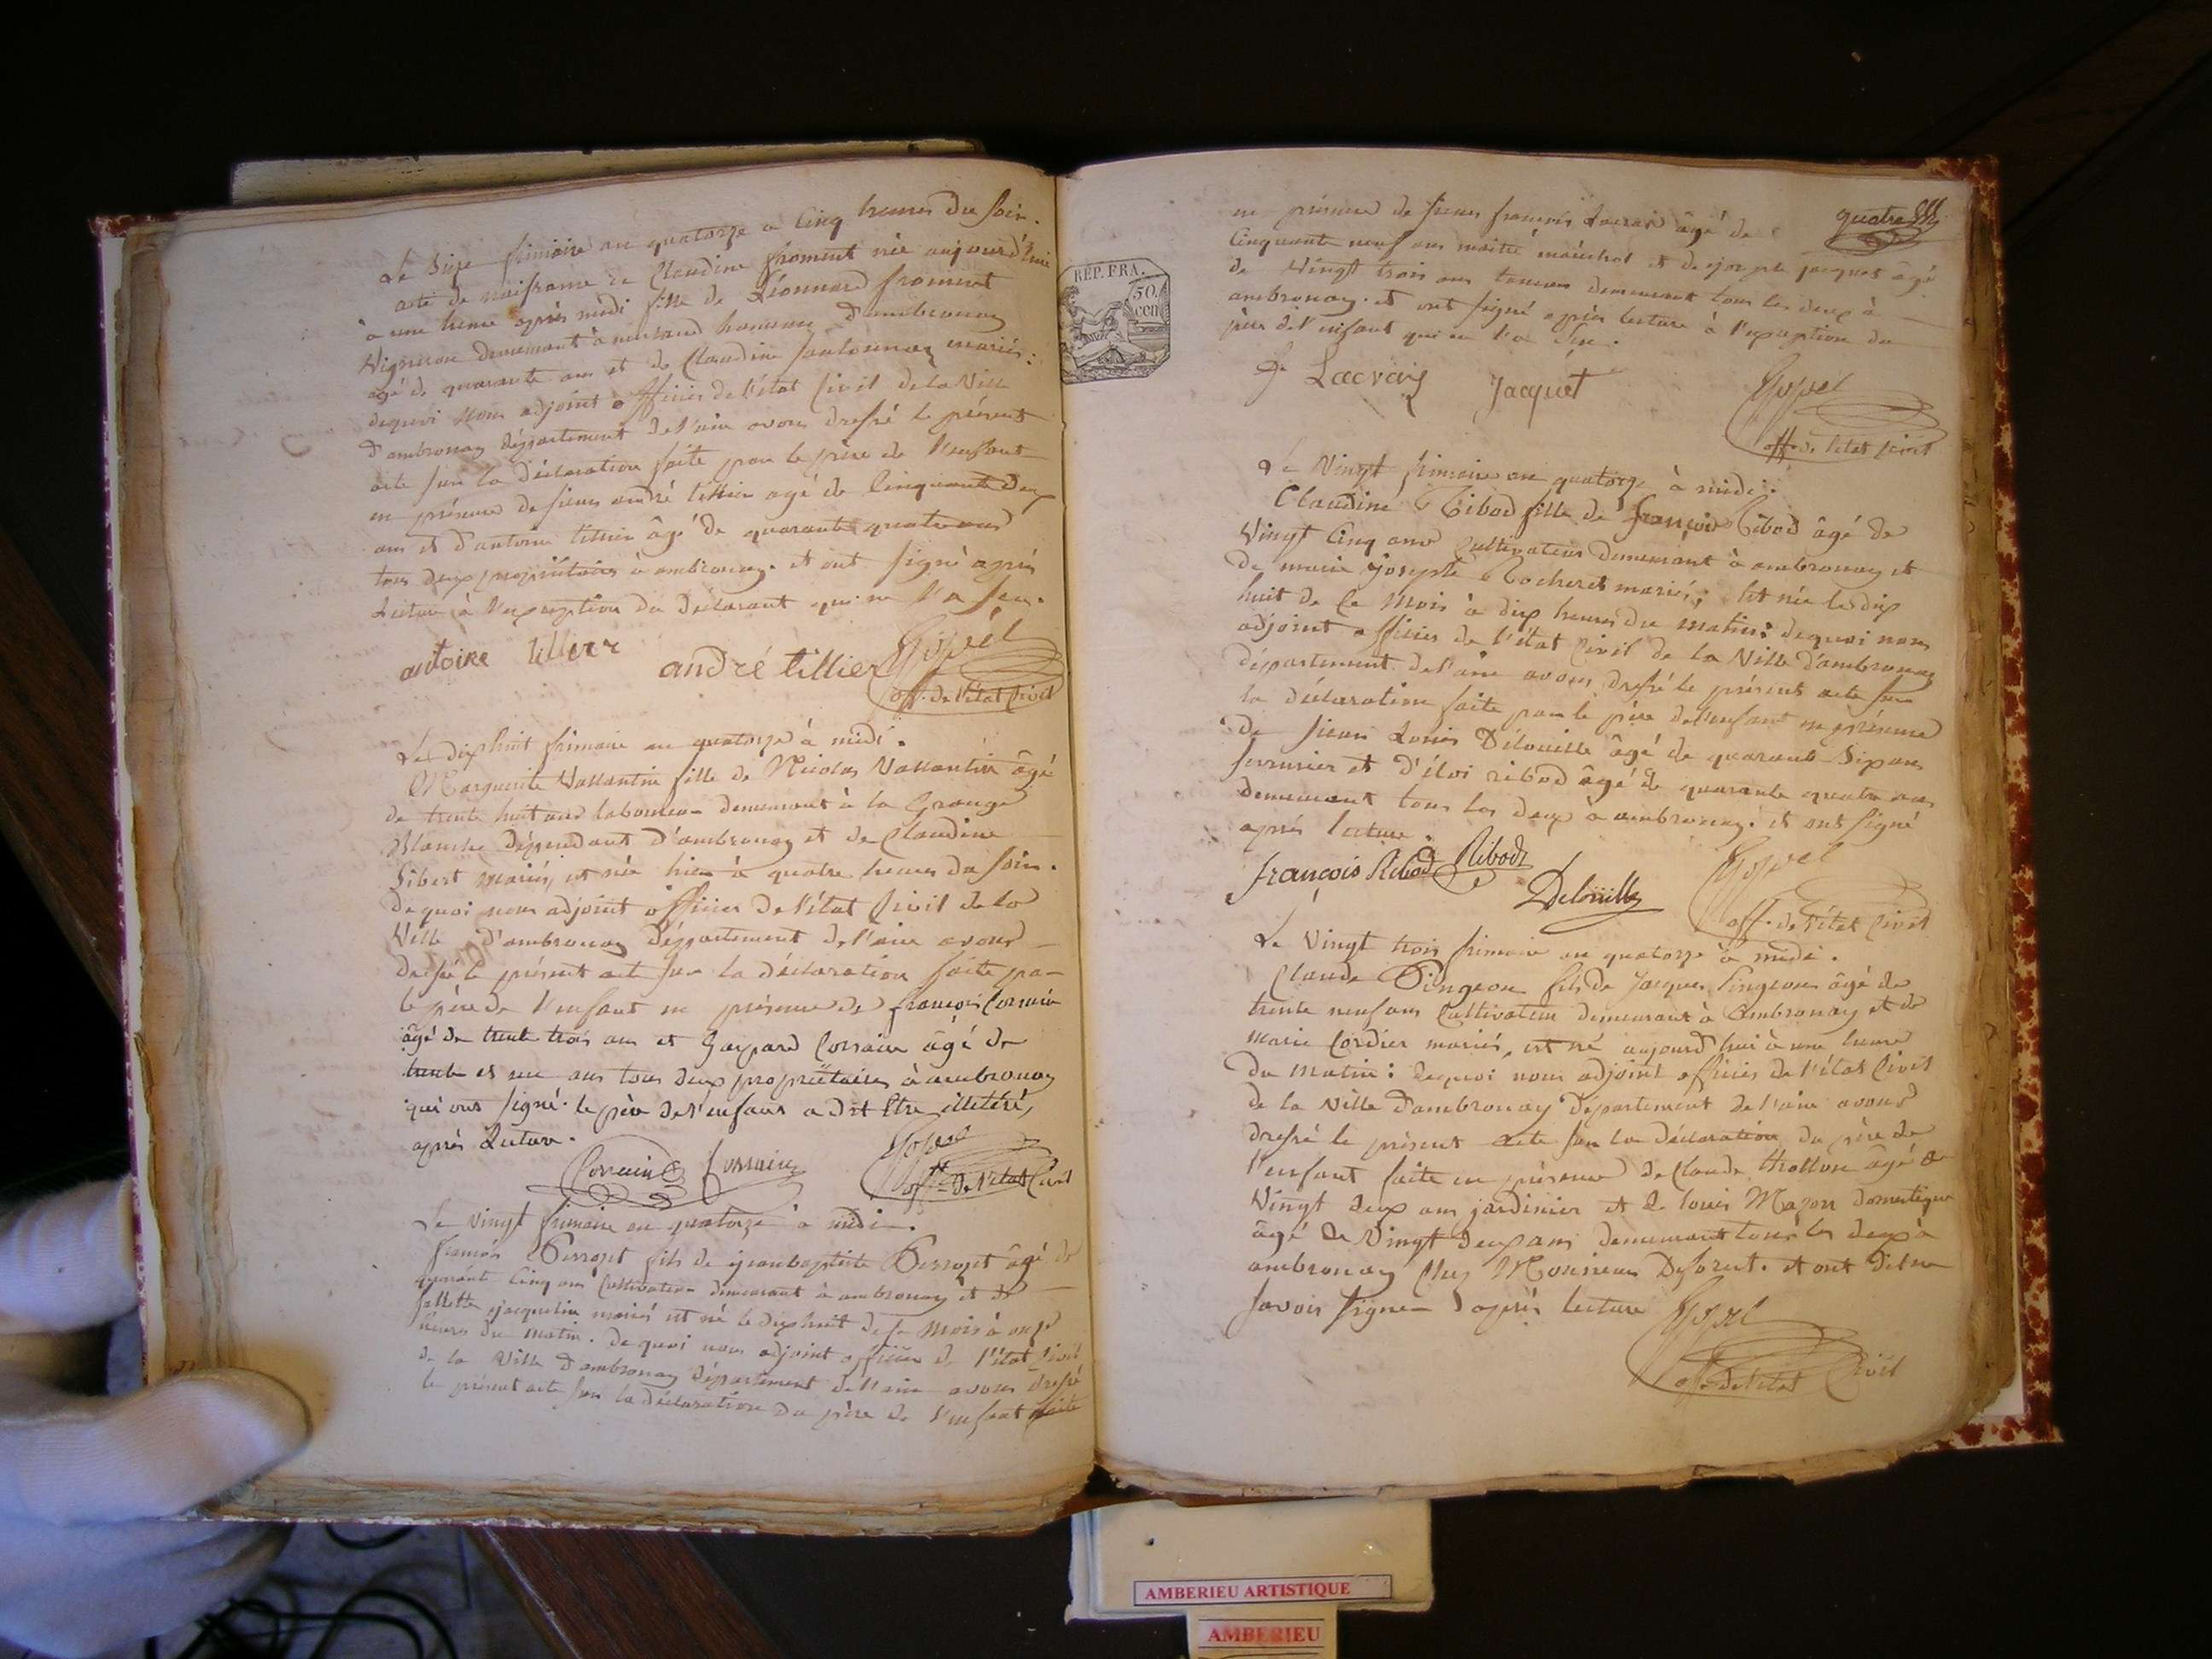 Le Sixe frimaire an quatorze a Cinq heures du soir.
acte de naissance de Claudine froment née aujourd'hui
à une heure après midi fille de Léonnard froment
Vigneron demeurant à hameau d'ambronay
agé de quarante ans et de Claudine mariés:
dequoi Nous adjoint officier de l'état Civil de la Ville
d'ambronay département de l'ain avons dressé le présent
acte sur la déclaration faite par le père de l'enfant
en présence de sieurs andré tillier agé de Cinquante deux
ans et d'antoine tillier âgé de quarante quatre ans
tous deux propriétaires à ambronay. et ont signé après
Lecture à l'exception du déclarant qui ne l'a seu.
antoine tillier
andré tillier
off. de l'état Civil
Le dixhuit frimaire an quatorze à midi.
Marguerite Vallantin fille de Nicolas Vallantin âgé
de trente huit ans laboureur demeurant à la Grange
Blanche dépendant d'ambronay et de Claudine
Sibert mariés, est née hier à quatre heures du soir.
dequoi nous adjoint officier de l'état Civil de la
Ville d'ambronay département de l'ain avons
dressé le présent acte sur la déclaration faite par
le père de l'enfant en présence de françois Corrain
âgé de trente trois ans et Gaspard Corrain âgé de
trente et un ans tous deux propriétaires à ambronay
qui ont signé. le père de l'enfant a dit Etre illetéré,
après Lecture.
Corrain Corrain
off. de l'état Civil
Le vingt frimaire an quatorze à midi.
françois Perropt fils de jeanbaptiste Perropt âgé de
quarante Cinq ans Cultivateur demeurant à ambronay et de
jacquelin mariés est né le dixhuit de ce Mois à onze
heures du matin. de quoi nous adjoint officier de l'état Civil
de la Ville d'ambronay département de l'ain avons dressé
le présent acte sur la déclaration du père de l'enfant faite
quatre
en présence de sieurs françois Lacrois âgé de
Cinquante neuf ans maitre maréchal et de joseph jacquet âgé
de Vingt trois ans demeurant tous les deux à
ambronay. et ont signé après lecture à l'exception du
père de l'enfant qui ne l'a Seu.
REP. FRA.
50.
cen
Jacquet
off. de l'état Civil
Le Vingt frimaire an quatorze à midi.
Claudine Ribod fille de françois Ribod âgé de
Vingt Cinq ans Cultivateur demeurant à ambronay et
de marie josepte Rocheret mariés; Est née le dix
huit de Ce Mois à dix heures du matin: dequoi nous
adjoint officier de l'état Civil de la Ville d'ambronay
département de l'ain avons dressé le présent acte sur
la déclaration faite par le père de l'enfant en présence
de sieurs Louis Délouille âgé de quarante Six ans
serrurier et d'éloi ribod âgé de quarante quatre ans
demeurant tous les deux à ambronay. et ont signé
après lecture.
françois Ribod Ribod
Delouille
off. de l'état Civil
Le Vingt trois frimaire an quatorze à midi.
Claude Pingeon fils de Jacques Pingeon âgé de
trente neuf ans Cultivateur demeurant à Ambronay et de
Marie Cordier mariés, est né aujourd'hui à une heure
du matin: dequoi nous adjoint officier de l'état Civil
de la Ville d'ambronay département de l'ain avons
dressé le présent acte sur la déclaration du père de
l'enfant faite en présence de Claude thollon âgé de
Vingt deux ans jardinier et de louis Mazon domestique
âgé de Vingt deux ans demeurant tous les deux à
ambronay Chez Monsieur Deforest. et ont dit ne
savoir signer après lecture
off. de l'état Civil
AMBERIEU ARTISTIQUE
AMBERIEU